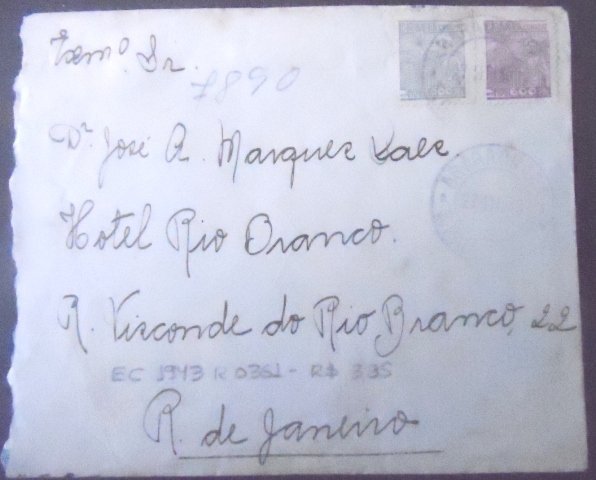 Exmº. Sr.
7890
600
Dr. José A. Marques
Hotel Rio Branco.
R. Visconde do Rio Branco, 22
EC 1943 R 0361 - R$ 3.35
R. de Janeiro